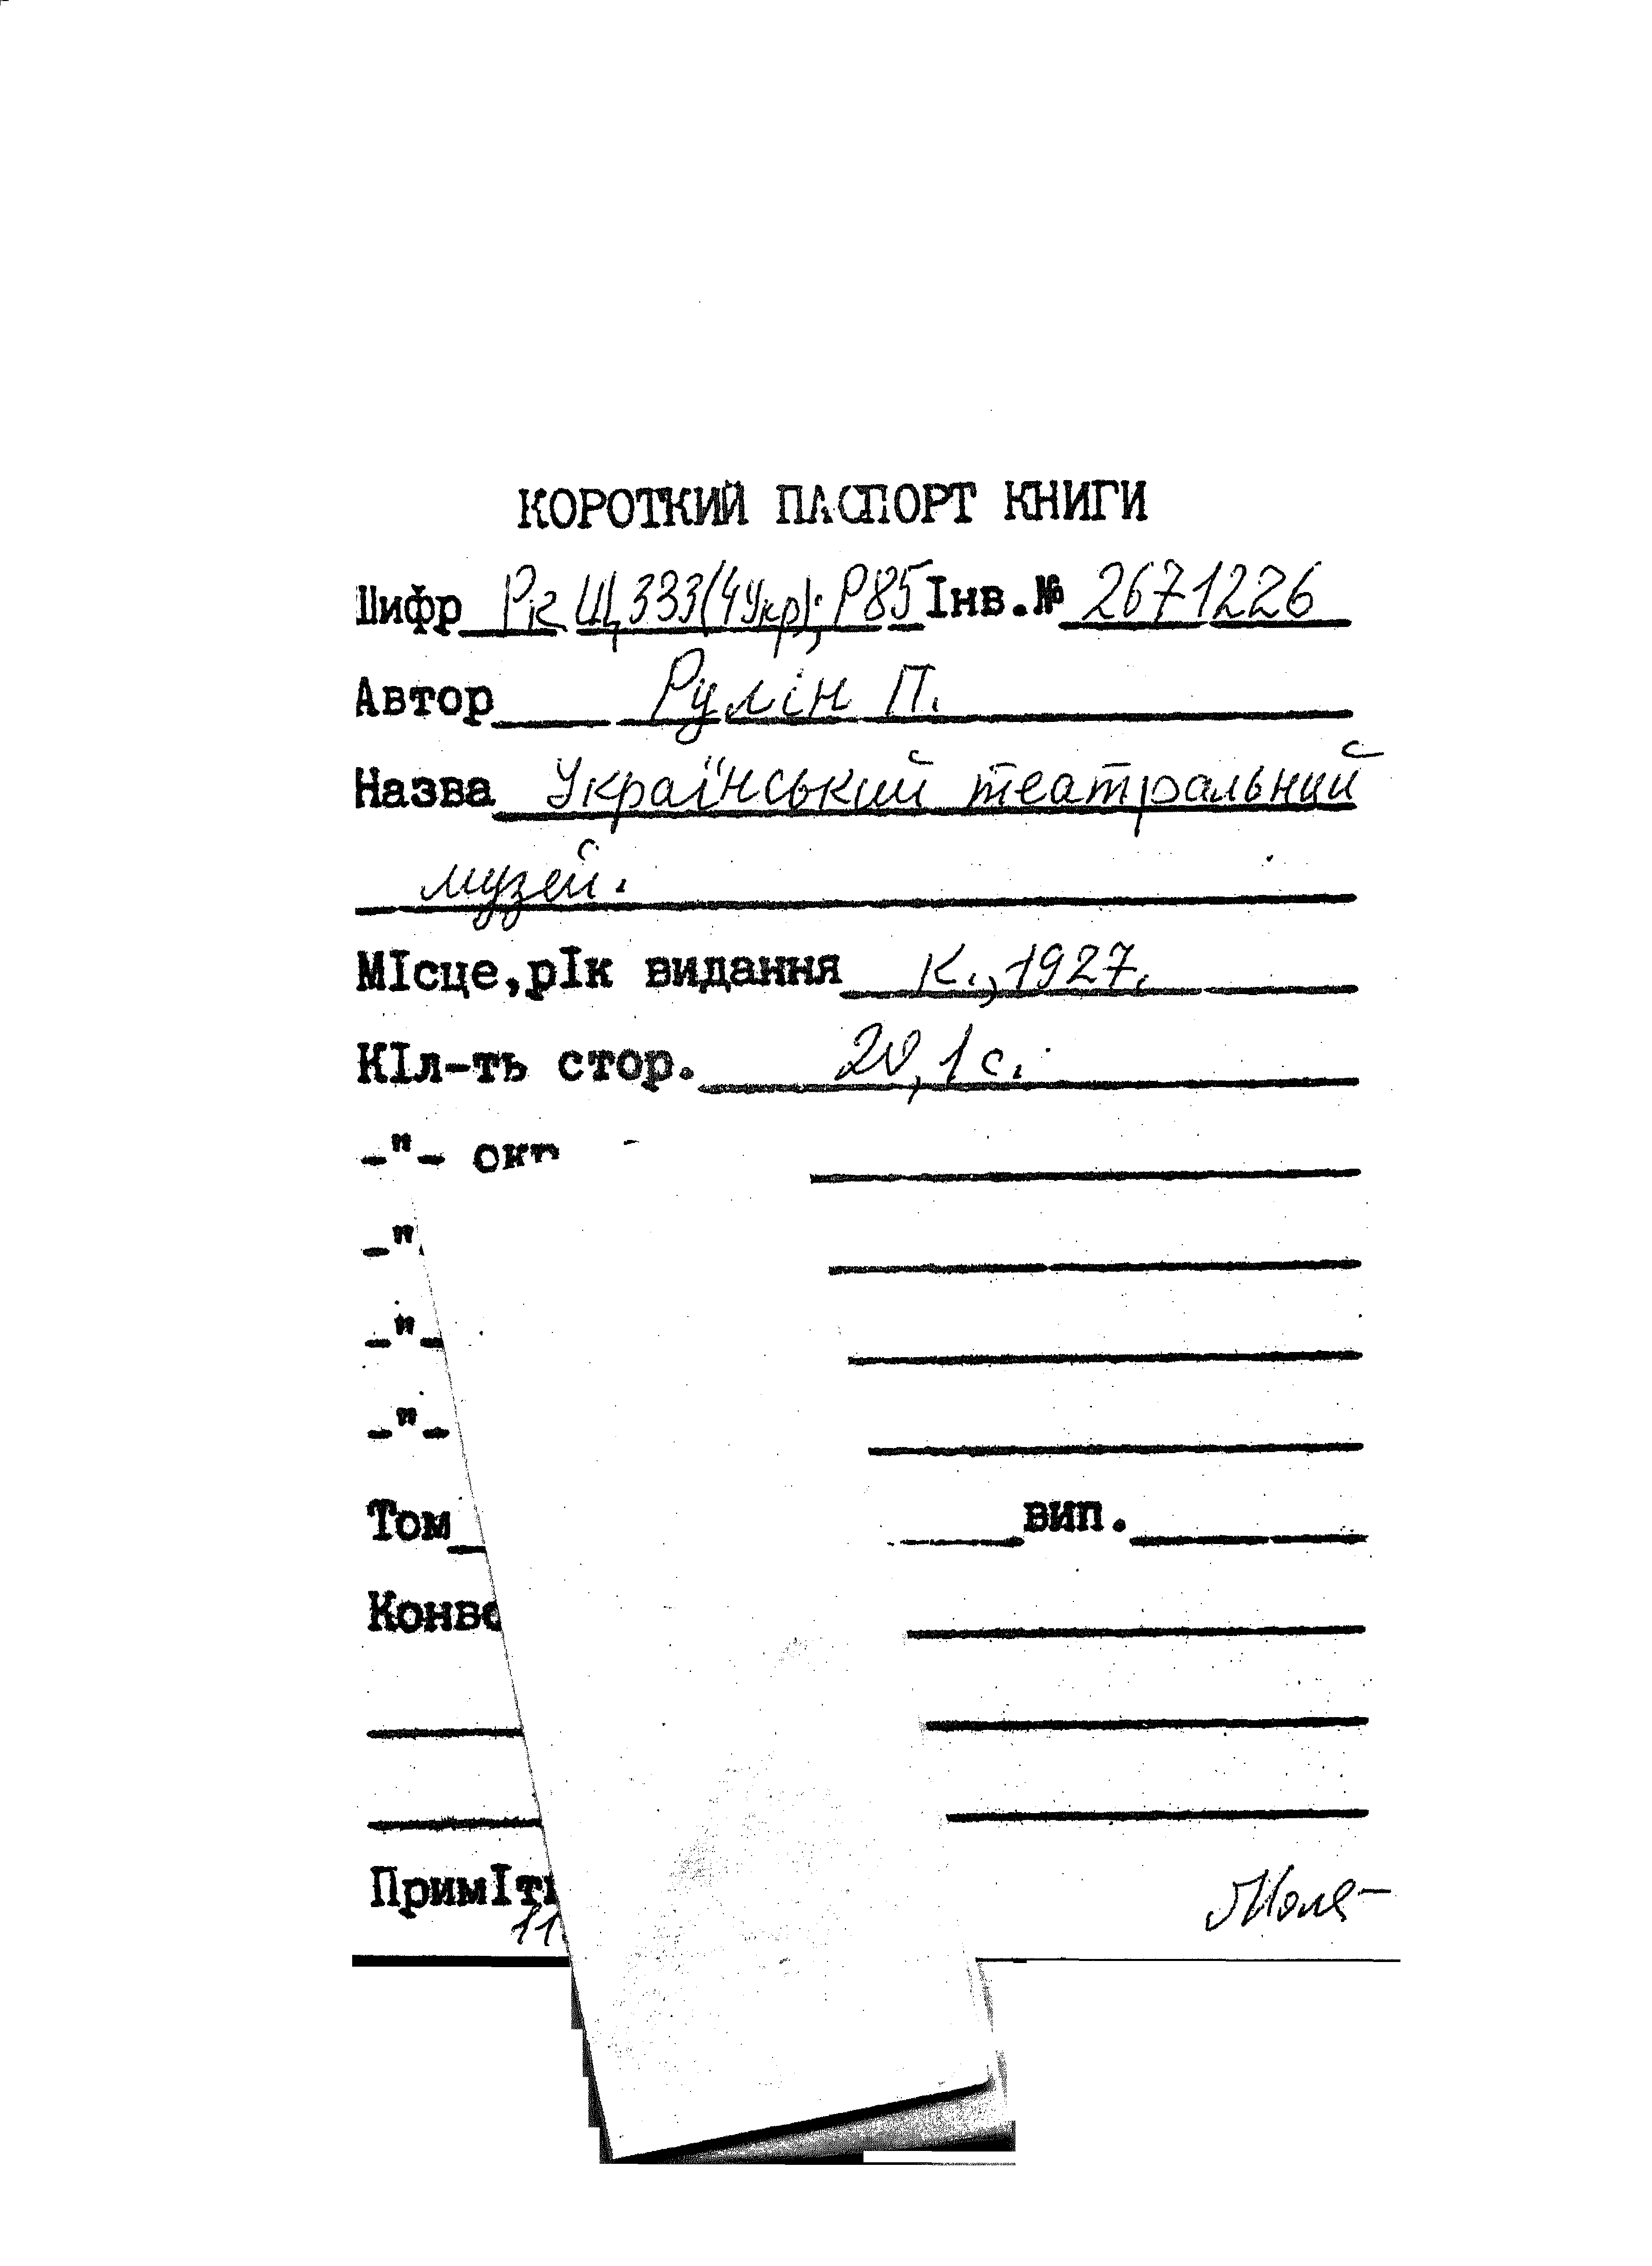 КОРОТКИЙ ПАСПОРТ КНИГИ
Шифр Рк Щ333(4Укр); Р85 Інв.№ 2671226
Автор Рулін П.
Назва Український театральний
музей.
МІсце,рІк видання К., 1927.
КІл-ть стор. 20, 1 с.
-"-
-"
-"-
-"-
Том вип.